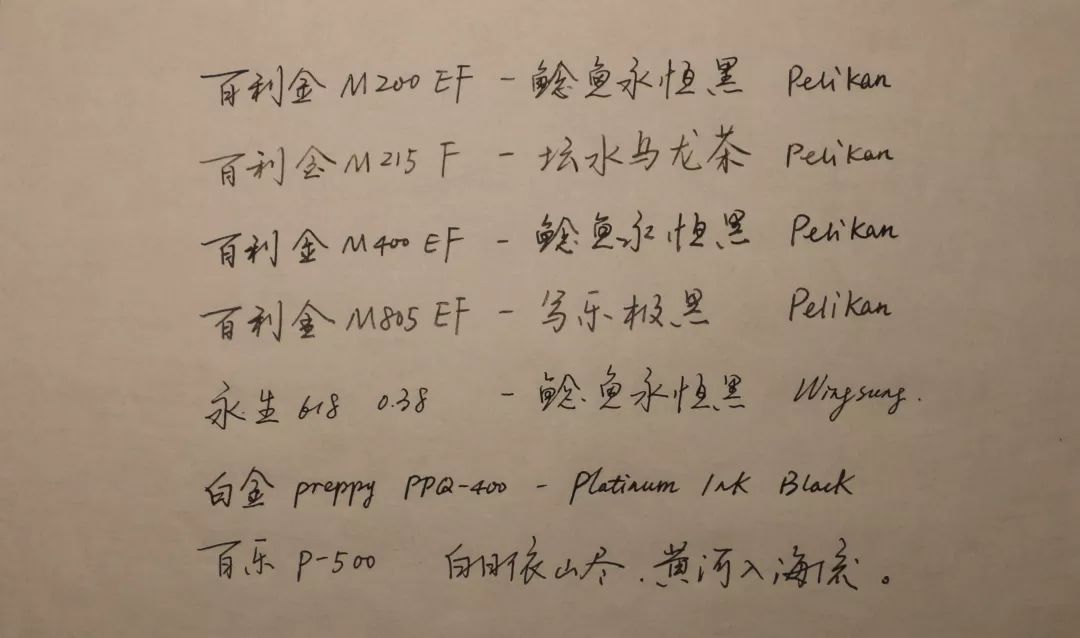 百利金 M200 EF - 鲶鱼永恒黑 Pelikan
百利金 M215 F - 坛水乌龙茶 Pelikan
百利金 M400 EF - 鲶鱼永恒黑 Pelikan
百利金 M805 EF - 写乐极黑 Pelikan
永生 618 0.38 - 鲶鱼永恒黑 Wingsung.
白金 preppy PPQ-400 - Platinum Ink Black
百乐 P-500 白日依山尽，黄河入海流。